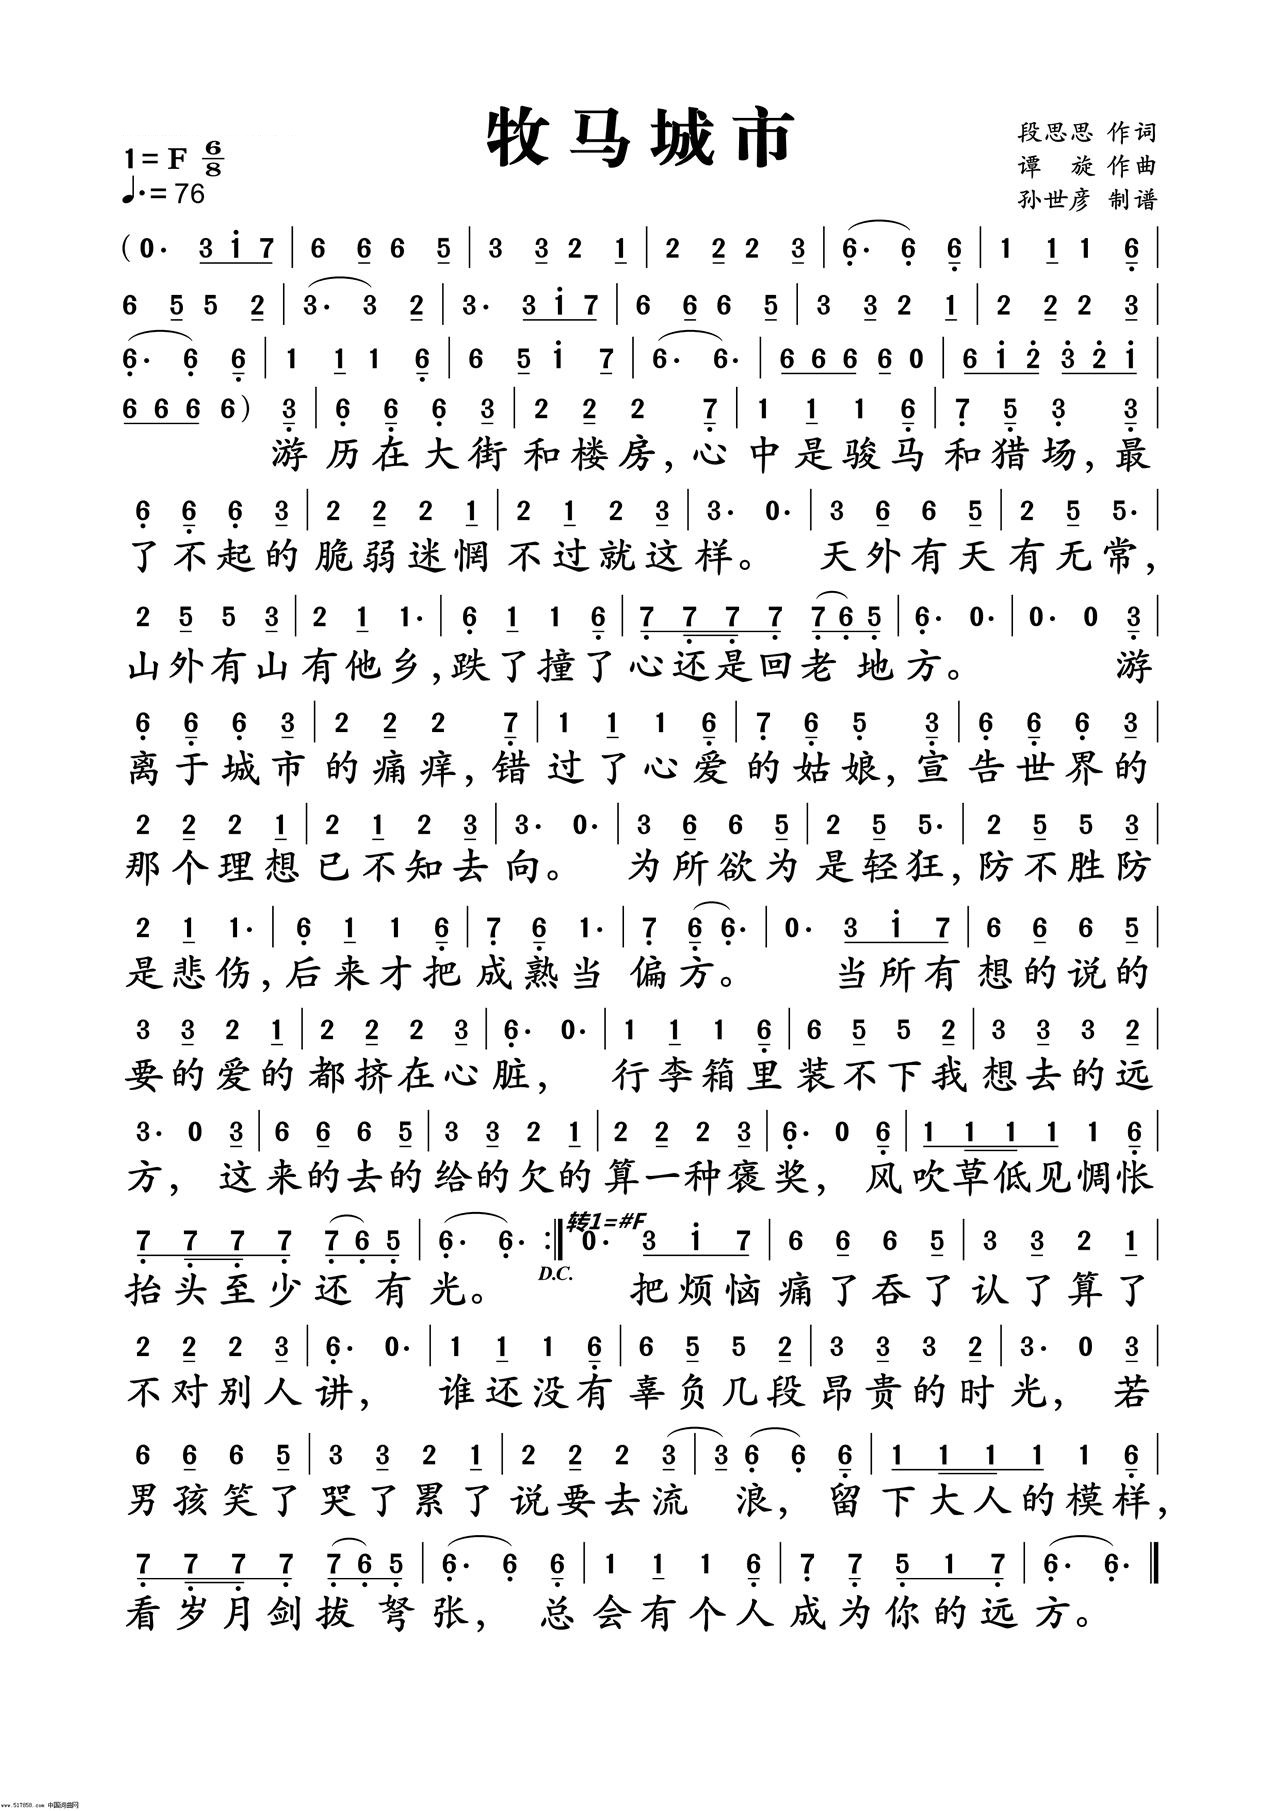 牧马城市
1=F 6/8
♩.=76
段思思 作词
谭 旋 作曲
孙世彦 制谱
(0· 3 i 7 | 6 6 6 5 | 3 3 2 1 | 2 2 2 3 | 6· 6 6 | 1 1 1 6 |
6 5 5 2 | 3· 3 2 | 3· 3 i 7 | 6 6 6 5 | 3 3 2 1 | 2 2 2 3 |
6· 6 6 | 1 1 1 6 | 6 5 i 7 | 6· 6· | 6 6 6 6 0 | 6 i 2 3 2 i |
6 6 6 6) 3 | 6 6 6 3 | 2 2 2 7 | 1 1 1 6 | 7 5 3 3 |
游历在大街和楼房,心中是骏马和猎场,最
6 6 6 3 | 2 2 2 1 | 2 1 2 3 | 3· 0· | 3 6 6 5 | 2 5 5· |
了不起的脆弱迷惘不过就这样。 天外有天有无常,
2 5 5 3 | 2 1 1· | 6 1 1 6 | 7 7 7 7 7 6 5 | 6· 0· | 0· 0 3 |
山外有山有他乡,跌了撞了心还是回老地方。 游
6 6 6 3 | 2 2 2 7 | 1 1 1 6 | 7 6 5 3 | 6 6 6 3 |
离于城市的痛痒,错过了心爱的姑娘,宣告世界的
2 2 2 1 | 2 1 2 3 | 3· 0· | 3 6 6 5 | 2 5 5· | 2 5 5 3 |
那个理想已不知去向。 为所欲为是轻狂,防不胜防
2 1 1· | 6 1 1 6 | 7 6 1· | 7 6 6· | 0· 3 i 7 | 6 6 6 5 |
是悲伤,后来才把成熟当偏方。 当所有想的说的
3 3 2 1 | 2 2 2 3 | 6· 0· | 1 1 1 6 | 6 5 5 2 | 3 3 3 2 |
要的爱的都挤在心脏, 行李箱里装不下我想去的远
3· 0 3 | 6 6 6 5 | 3 3 2 1 | 2 2 2 3 | 6· 0 6 | 1 1 1 1 1 6 |
方, 这来的去的给的欠的算一种褒奖, 风吹草低见惆怅
转1=#F
7 7 7 7 7 6 5 | 6· 6· :‖ 0· 3 i 7 | 6 6 6 5 | 3 3 2 1 |
D.C.
抬头至少还有光。 把烦恼痛了吞了认了算了
2 2 2 3 | 6· 0· | 1 1 1 6 | 6 5 5 2 | 3 3 3 2 | 3· 0 3 |
不对别人讲, 谁还没有辜负几段昂贵的时光, 若
6 6 6 5 | 3 3 2 1 | 2 2 2 3 | 3 6 6 6 | 1 1 1 1 1 6 |
男孩笑了哭了累了说要去流浪,留下大人的模样,
7 7 7 7 7 6 5 | 6· 6 6 | 1 1 1 6 | 7 7 5 1 7 | 6· 6· ‖
看岁月剑拔弩张, 总会有个人成为你的远方。
www.517858.com 中国词曲网